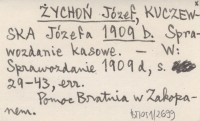 ŻYCHOŃ Józef, KUCZEW-
SKA Józefa 1909 b. Spra-
wozdanie kasowe. — W:
Sprawozdanie 1909 d, s.
29-43, err.
Pomoc Bratnia w Zakopa-
nem.